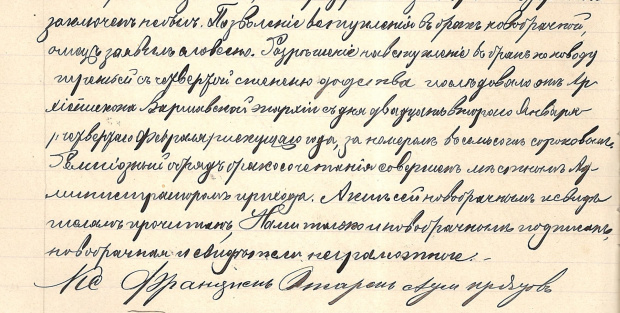 заключенъ небылъ. Позволеніе вступленія въ бракъ новобрачной,
отецъ заявилъ словесно. Разрѣшеніе на вступленіе въ бракъ по поводу
третьей съ четвертой степени родства послѣдовало отъ Ар-
хіепископа Варшавской Эпархіи съ дня двадцать втораго Января
/четвертаго Февраля/ текущаго года, за номеромъ восемьсотъ сороковымъ.
Религіозный обрядъ бракосочетанія совершенъ мѣстнымъ Ад-
министраторомъ прихода. Актъ сей новобрачнымъ и свидѣ-
телямъ прочитанъ, Нами только и новобрачнымъ подписанъ,
новобрачная и свидѣтели неграмотные.
Францишекъ